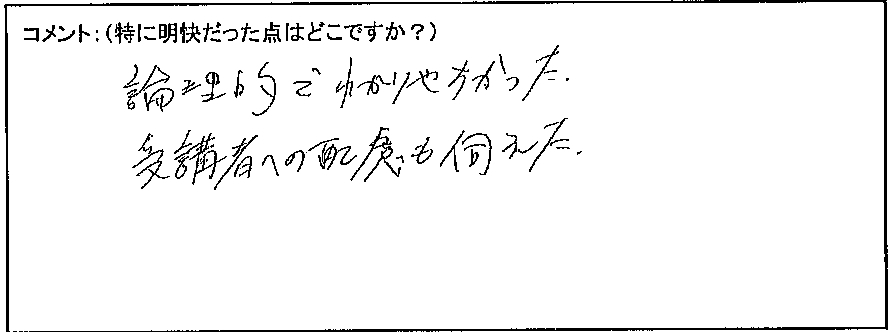 コメント:(特に明快だった点はどこですか?)
論理的でわかりやすかった.
受講者への配慮も伺えた.